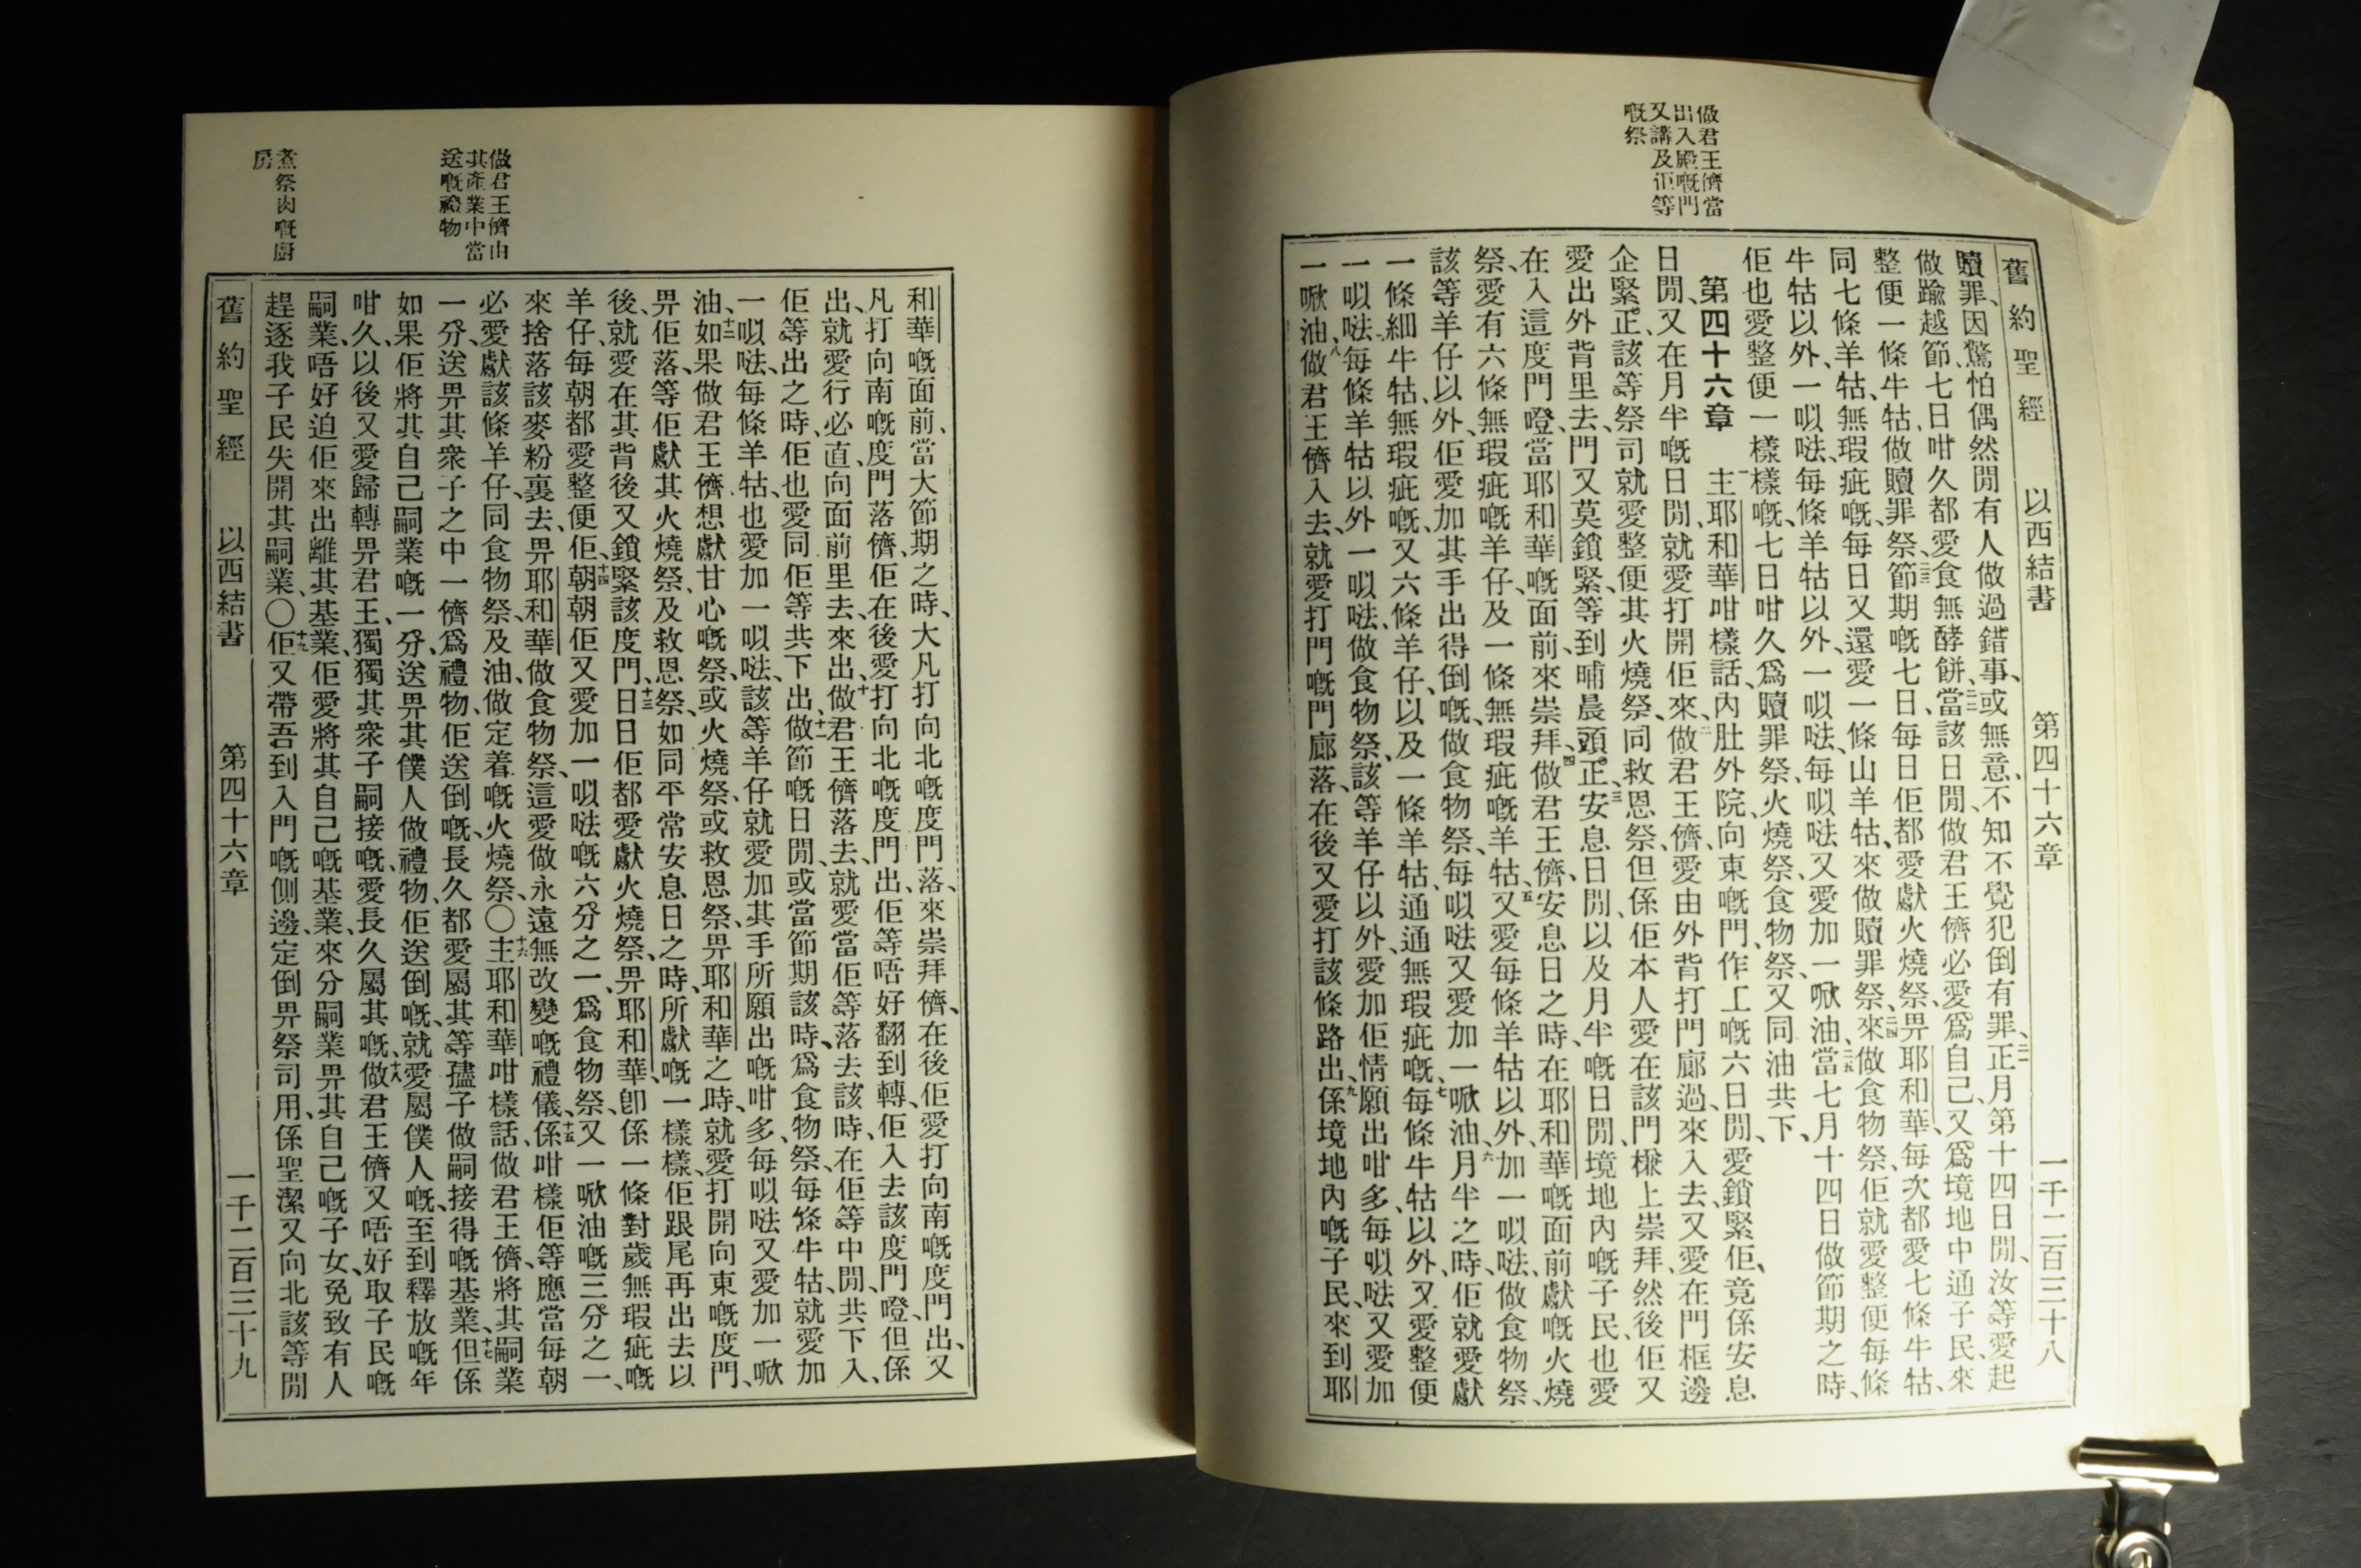 做君王儕當
出入殿嘅門
又講及佢等
嘅祭
舊約聖經 以西結書 第四十六章 一千二百三十八
贖罪、因驚怕偶然閒有人做過錯事、或無意、不知不覺犯倒有罪、二一正月第十四日閒、汝等愛起
做踰越節、七日咁久都愛食無酵餅、二二當該日閒、做君王儕必愛爲自己、又爲境地中通子民、來
整便一條牛牯、做贖罪祭、二三節期嘅七日、每日佢都愛獻火燒祭、畀耶和華、每次都愛七條牛牯、
同七條羊牯、無瑕疵嘅、每日又還愛一條山羊牯、來做贖罪祭、二四來做食物祭、佢就愛整便每條
牛牯以外、一㕥㗑、每條羊牯以外、一㕥㗑、每㕥㗑又愛加一㗀油、二五當七月十四日做節期之時、
佢也愛整便一樣樣嘅、七日咁久爲贖罪祭、火燒祭、食物祭、又同油共下、
第四十六章 一主耶和華咁樣話、內肚外院、向東嘅門、作工嘅六日閒、愛鎖緊佢、竟係安息
日閒、又在月半嘅日閒、就愛打開佢來、二做君王儕愛由外背打門廊過、來入去、又愛在門框邊
企緊。正、該等祭司就愛整便其火燒祭、同救恩祭、但係佢本人愛在該門檄上崇拜、然後佢又
愛出外背里去、門又莫鎖緊、等到晡晨頭。正、三安息日閒、以及月半嘅日閒、境地內嘅子民、也愛
在入這度門嶝、當耶和華嘅面前、來崇拜、四做君王儕、安息日之時、在耶和華嘅面前獻嘅火燒
祭、愛有六條無瑕疵嘅羊仔、及一條無瑕疵嘅羊牯、五又愛每條羊牯以外、加一㕥㗑、做食物祭、
該等羊仔以外、佢愛加其手出得倒嘅、做食物祭、每㕥㗑又愛加一㗀油、六月半之時、佢就愛獻
一條細牛牯、無瑕疵嘅、又六條羊仔、以及一條羊牯、通通無瑕疵嘅、七每條牛牯以外、又愛整便
一㕥㗑、每條羊牯以外一㕥㗑、做食物祭、該等羊仔以外、愛加佢情願出咁多、每㕥㗑又愛加
一㗀油、八做君王儕入去、就愛打門嘅門廊落、在後又愛打該條路出、九係境地內嘅子民、來到耶
做君王儕由
其產業中當
送嘅禮物
煮祭肉嘅廚
房
和華嘅面前、當大節期之時、大凡打向北嘅度門落、來崇拜儕、在後佢愛打向南嘅度門出、又
凡打向南嘅度門落儕、佢在後愛打向北嘅度門出、佢等唔好翻到轉、佢入去該度門嶝、但係
出、就愛行必直向面前里去、來出、十做君王儕落去、就愛當佢等落去該時、在佢等中閒共下入、
佢等出之時、佢也愛同佢等共下出、十一做節嘅日閒、或當節期該時、爲食物祭、每條牛牯、就愛加
一㕥㗑、每條羊牯、也愛加一㕥㗑、該等羊仔就愛加其手所願出嘅咁多、每㕥㗑又愛加一㗀
油、十二如果做君王儕想獻甘心嘅祭、或火燒祭、或救恩祭、畀耶和華之時、就愛打開向東嘅度門、
畀佢落、等佢獻其火燒祭、及救恩祭、如同平常安息日之時、所獻嘅一樣樣、佢跟尾再出去以
後、就愛在其背後又鎖緊該度門、十三日日佢都愛獻火燒祭、畀耶和華、卽係一條對歲無瑕疵嘅
羊仔、每朝都愛整便佢、十四朝朝佢又愛加一㕥㗑嘅六分之一、爲食物祭、又一㗀油嘅三分之一、
來捨落該麥粉裏去、畀耶和華做食物祭、這愛做永遠無改變嘅禮儀、十五係咁樣佢等應當每朝
必愛獻該條羊仔、同食物祭、及油、做定着嘅火燒祭、〇十六主耶和華咁樣話、做君王儕、將其嗣業
一分、送畀其衆子之中一儕爲禮物、佢送倒嘅、長久都愛屬其等孻子做嗣接得嘅基業、十七但係
如果佢將其自己嗣業嘅一分、送畀其僕人做禮物、佢送倒嘅、就愛屬僕人嘅、至到釋放嘅年
咁久、以後又愛歸轉畀君王、獨獨其衆子嗣接嘅、愛長久屬其嘅、十八做君王儕又唔好取子民嘅
嗣業、唔好迫佢來出離其基業、佢愛將其自己嘅基業、來分嗣業畀其自己嘅子女、免致有人
趕逐我子民失開其嗣業、〇十九佢又帶吾到入門嘅側邊、定倒畀祭司用、係聖潔又向北該等閒
舊約聖經 以西結書 第四十六章 一千二百三十九